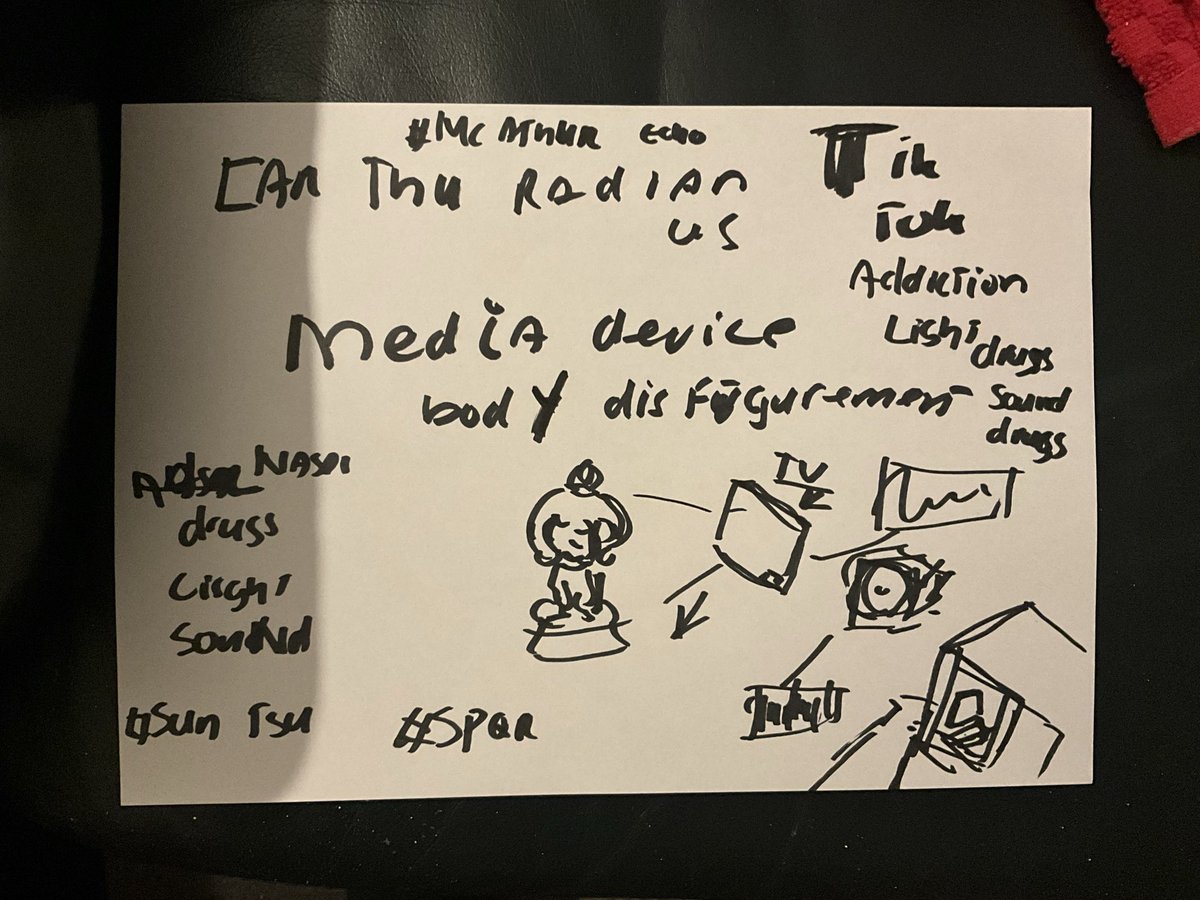 #Mc Athur Echo
CAn Thu RAdiAn
us
Tik
Tok
Addiction
Light
drugs
Sound
drugs
MediA device
body disfigurement
NASAl
drugs
Light
Sound
TV
#Sun Tsu
#SPQR